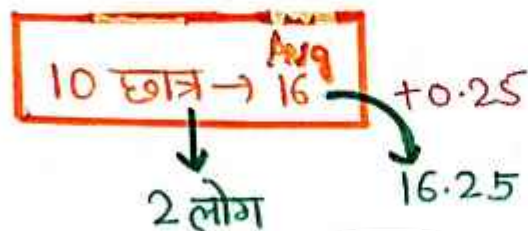 Avg
10 छात्र → 16 +0.25
2 लोग 16.25